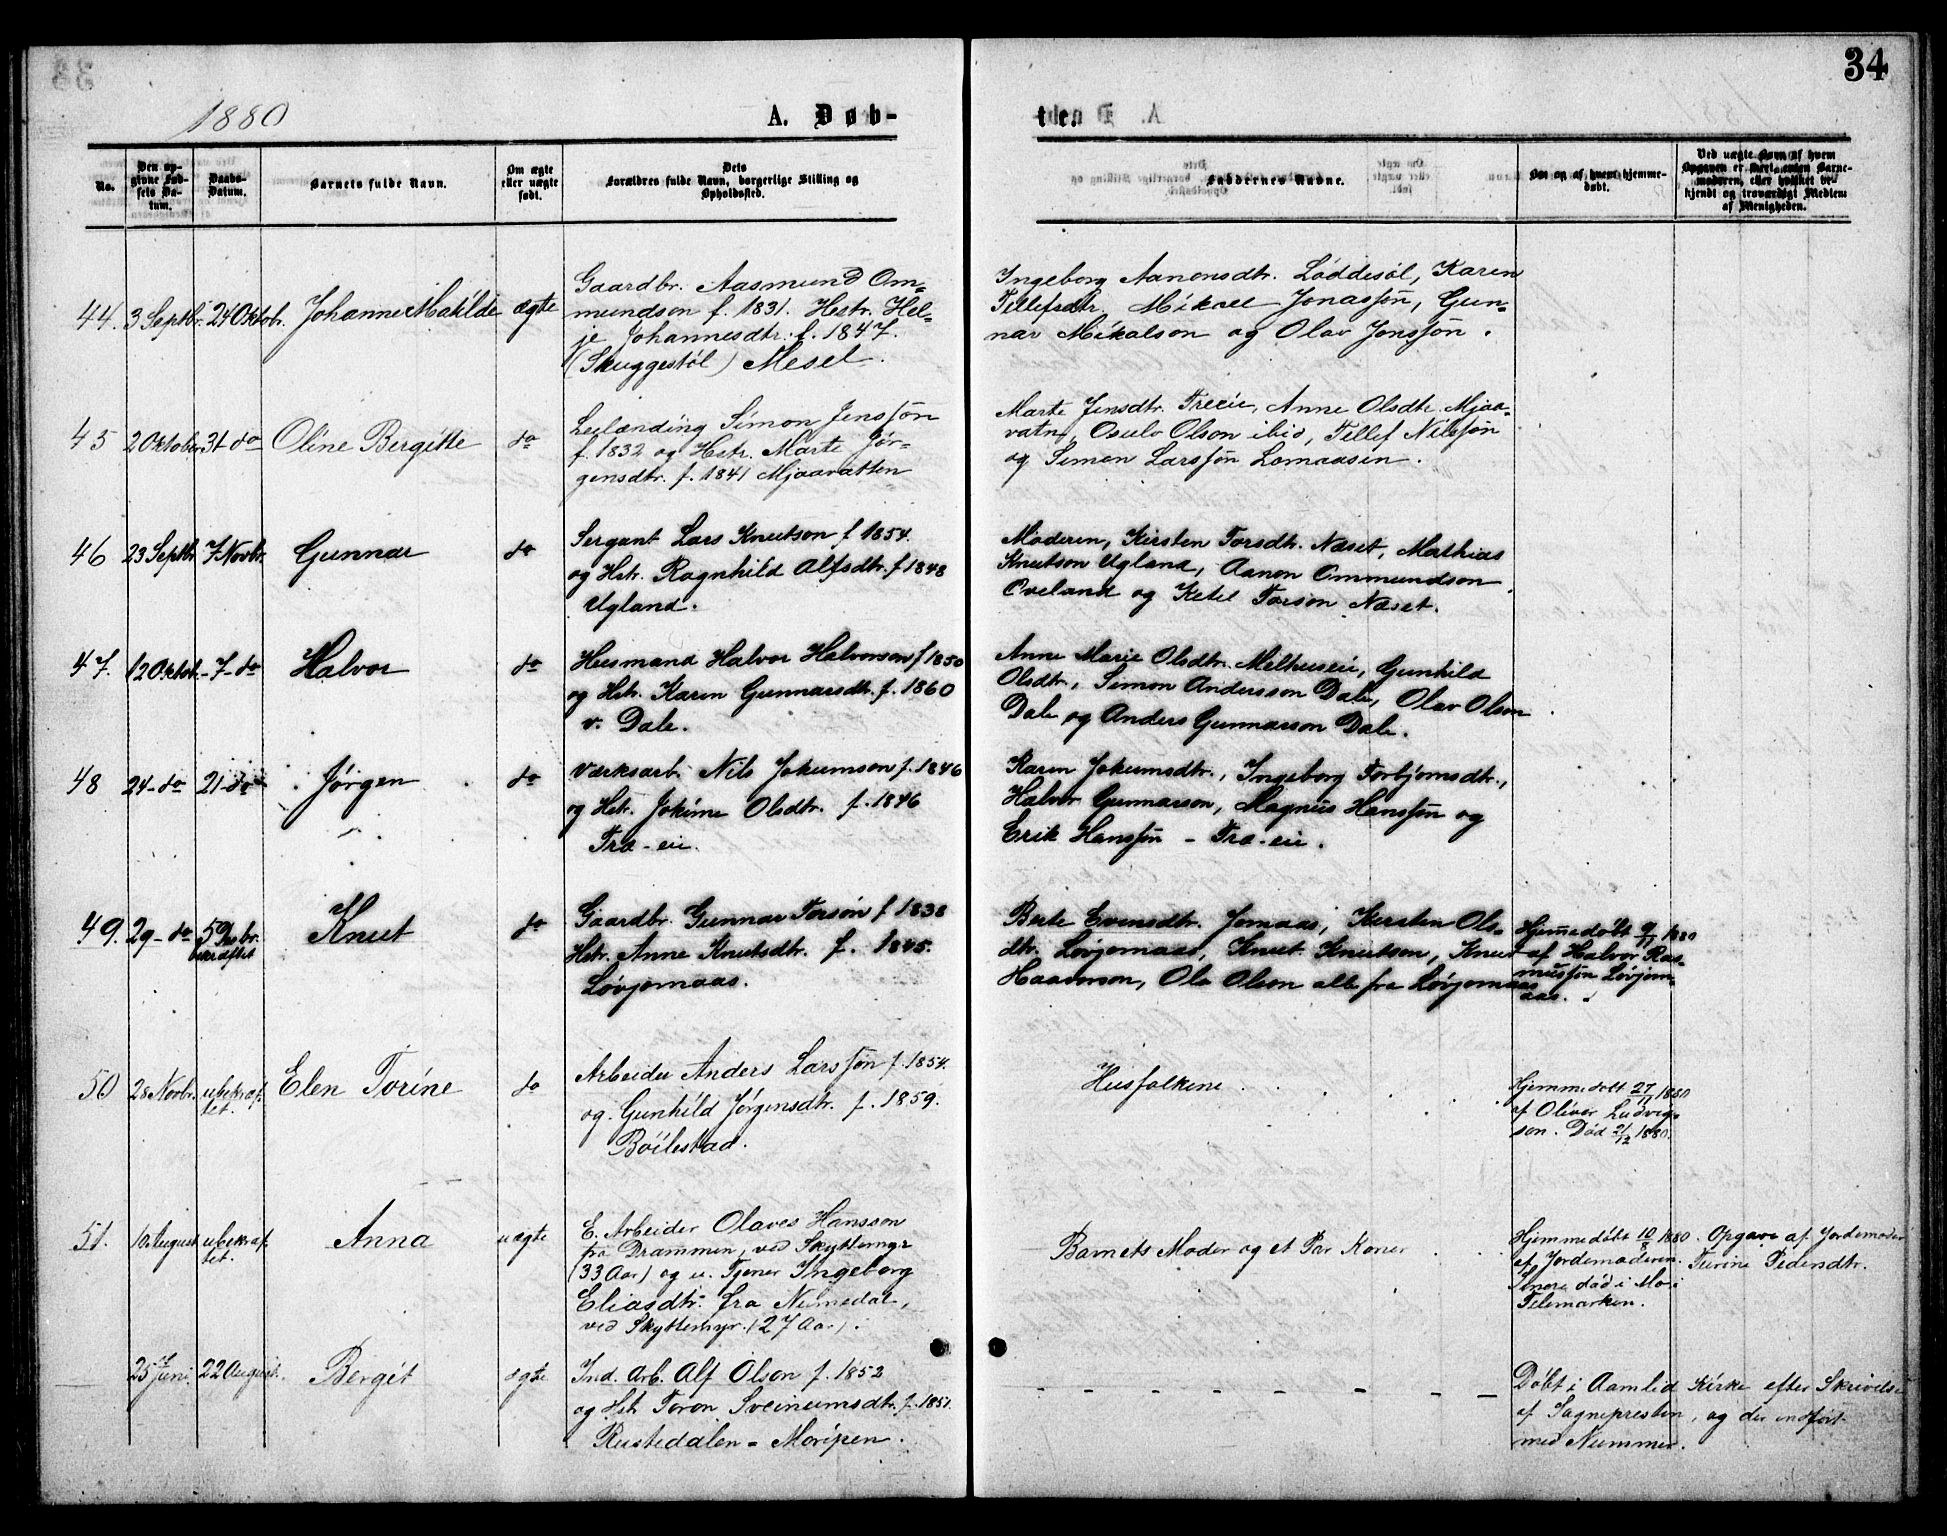 34
1880
A. Døb-
ten.
No.
Den op-
givne Fød-
sels Da-
tum.
Daabs-
Datum.
Barnets fulde Navn.
Om ægte
eller uægte
født.
Dets
Forældres fulde Navn, borgerlige Stilling og
Opholdssted.
Faddernes Navne.
Om og af hvem hjemme-
døbt.
Ved uægte Børn af hvem
Opgaven er
moderen, eller hvilket be-
kjendt og troværdigt Medlem
af Menigheden.
44. 3 Septbr. 24 Oktob. Johanne Matilde ægte
Gaardbr. Aasmund Om-
mundson f. 1831. Hstr. Hel-
je Johannesdtr. f. 1847.
(Skuggestøl) Mesel.
Ingeborg Aanonsdtr. Løddesøl, Karen
Tellefsdtr. Mikael Jonassøn, Gun-
nar Mikalson og Olav Jonssøn.
45 2 Oktober 31 do Oline Bergitte do
Leilænding Simon Jenssøn
f. 1832 og Hstr. Marte Jør-
gensdtr. f. 1841 Mjaavatten
Marte Jensdtr. Treeie, Anne Olsdtr. Mjaa-
vatn, Osulv Olson ibid, Tellef Nilssøn
og Simon Larssøn Lomaasen.
46 23 Septbr. 7 Novbr. Gunnar do
Sergant Lars Knutson f 1854.
og Hstr. Ragnhild Alfsdtr. f 1848
Ugland.
Moderen, Kirsten Torsdtr. Næset, Mathias
Knutson Ugland, Aanon Ommundson
Oveland og Ketel Torson Næset.
47. 12 Oktob. - 7 - do Halvor do
Husmand Halvor Halvorson f 1850
og Hstr. Karen Gunnarsdtr. f. 1860
v. Dale.
Anne Marie Olsdtr. Melhuseie, Gunhild
Olsdtr, Simon Andersson Dale, Olav Olson
Dale og Anders Gunnarson Dale.
48 24 - do 21 - do Jørgen do
Værksarb. Nils Jokumson f. 1846
og Hstr. Jokime Olsdtr. f. 1846
Træ-eie.
Karen Jokumsdtr., Ingeborg Torbjørnsdtr.,
Halvor Gunnarson, Magnus Hanssøn og
Erik Hanssøn - Træ-eie.
49. 29 - do 5
bekræftet Knut do
Gaardbr. Gunnar Torsøn f 1838
Hstr. Anne Knutsdtr. f. 1845.
Løvjomaas.
Berte Evensdtr. Jomaas, Kirsten Ols-
dtr. Løvjomaas, Knut Knutson, Knut
Haavorson, Ola Olson alle fra Løvjomaas
Hjemmedøbt 9/11 1880
af Halvor Ras-
mussøn Løvjom-
aas.
50 28 Novbr. ubekræf-
tet. Elen Torine do
Arbeider Anders Larssøn f. 1854.
og Gunhild Jørgensdtr. f. 1859.
Bøilestad.
Husfolkene
Hjemmedøbt 27/11 1880
af Oliver Ludvig-
son. Død 21/12 1880.
51. 10 August ubekræf-
tet. Anna uægte
E. Arbeider Olaves Hansson
fra Drammen, ved Skyttemyr
(33 Aar) og u. Tjener Ingeborg
Eliasdtr. fra Numedal,
ved Skyttemyr. (27 Aar).
Barnets Moder og et Par Koner
Hjemmedøbt 10/8 1880
af Jordemoderen.
Senere død i Mo i
Telemarken.
Opgave af Jordemoder
Turine Pedersdtr.
25 Juni. 22 August. Bergit ægte
Ind. Arb. Alf Olson f. 1852
og Hstr Toron Sveinumsdtr. f. 1851.
Rusteddalen - Moripen.
Døbt i Aamlid Kirke efter Skrivelse
af Sognepresten, og der indført
med Nummer.